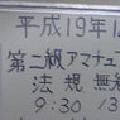 平成19年1
第二級アマチュア
法規 無
9:30 13